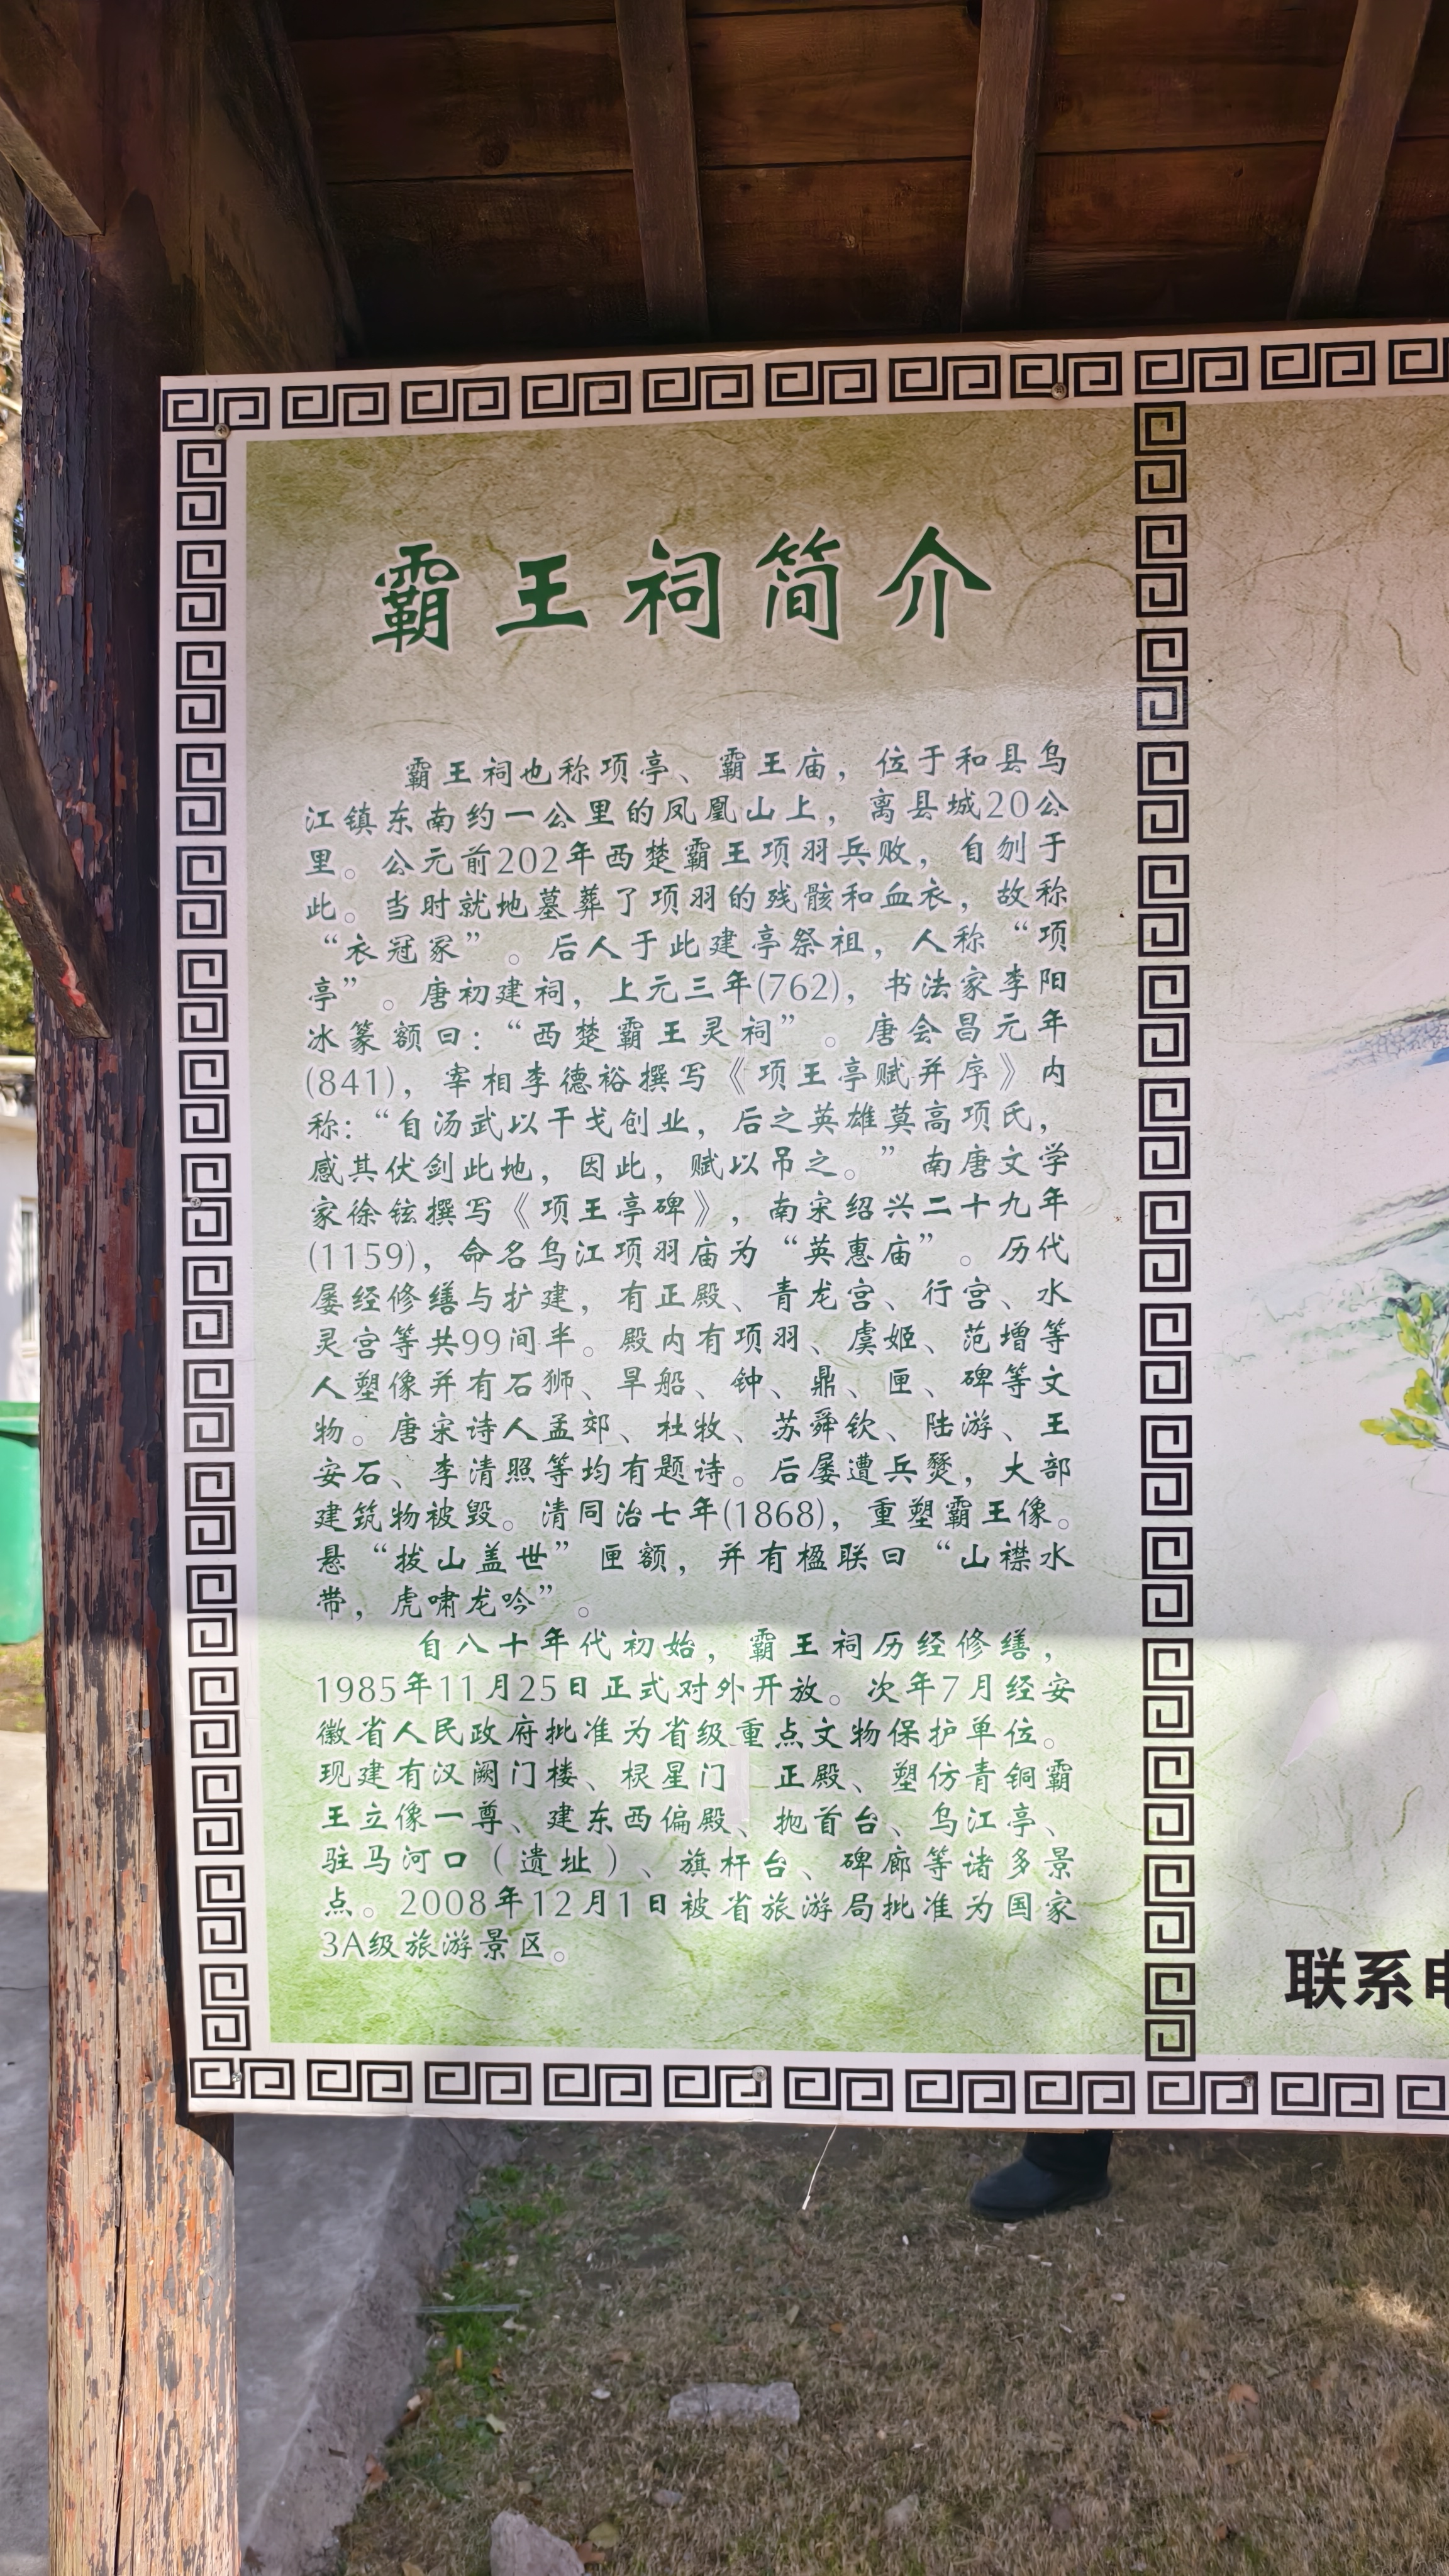 霸王祠简介
霸王祠也称项亭、霸王庙，位于和县乌
江镇东南约一公里的凤凰山上，离县城20公
里。公元前202年西楚霸王项羽兵败，自刎于
此。当时就地墓葬了项羽的残骸和血衣，故称
“衣冠冢”。后人于此建亭祭祖，人称“项
亭”。唐初建祠，上元三年(762)，书法家李阳
冰篆额曰：“西楚霸王灵祠”。唐会昌元年
(841)，宰相李德裕撰写《项王亭赋并序》内
称：“自汤武以干戈创业，后之英雄莫高项氏，
感其伏剑此地，因此，赋以吊之。”南唐文学
家徐铉撰写《项王亭碑》，南宋绍兴二十九年
(1159)，命名乌江项羽庙为“英惠庙”。历代
屡经修缮与扩建，有正殿、青龙宫、行宫、水
灵宫等共99间半。殿内有项羽、虞姬、范增等
人塑像并有石狮、旱船、钟、鼎、匣、碑等文
物。唐宋诗人孟郊、杜牧、苏舜钦、陆游、王
安石、李清照等均有题诗。后屡遭兵燹，大部
建筑物被毁。清同治七年(1868)，重塑霸王像。
悬“拔山盖世”匣额，并有楹联曰“山襟水
带，虎啸龙吟”。
自八十年代初始，霸王祠历经修缮，
1985年11月25日正式对外开放。次年7月经安
徽省人民政府批准为省级重点文物保护单位。
现建有汉阙门楼、棂星门 正殿、塑仿青铜霸
王立像一尊、建东西偏殿、抛首台、乌江亭、
驻马河口（遗址）、旗杆台、碑廊等诸多景
点。2008年12月1日被省旅游局批准为国家
3A级旅游景区。
联系电